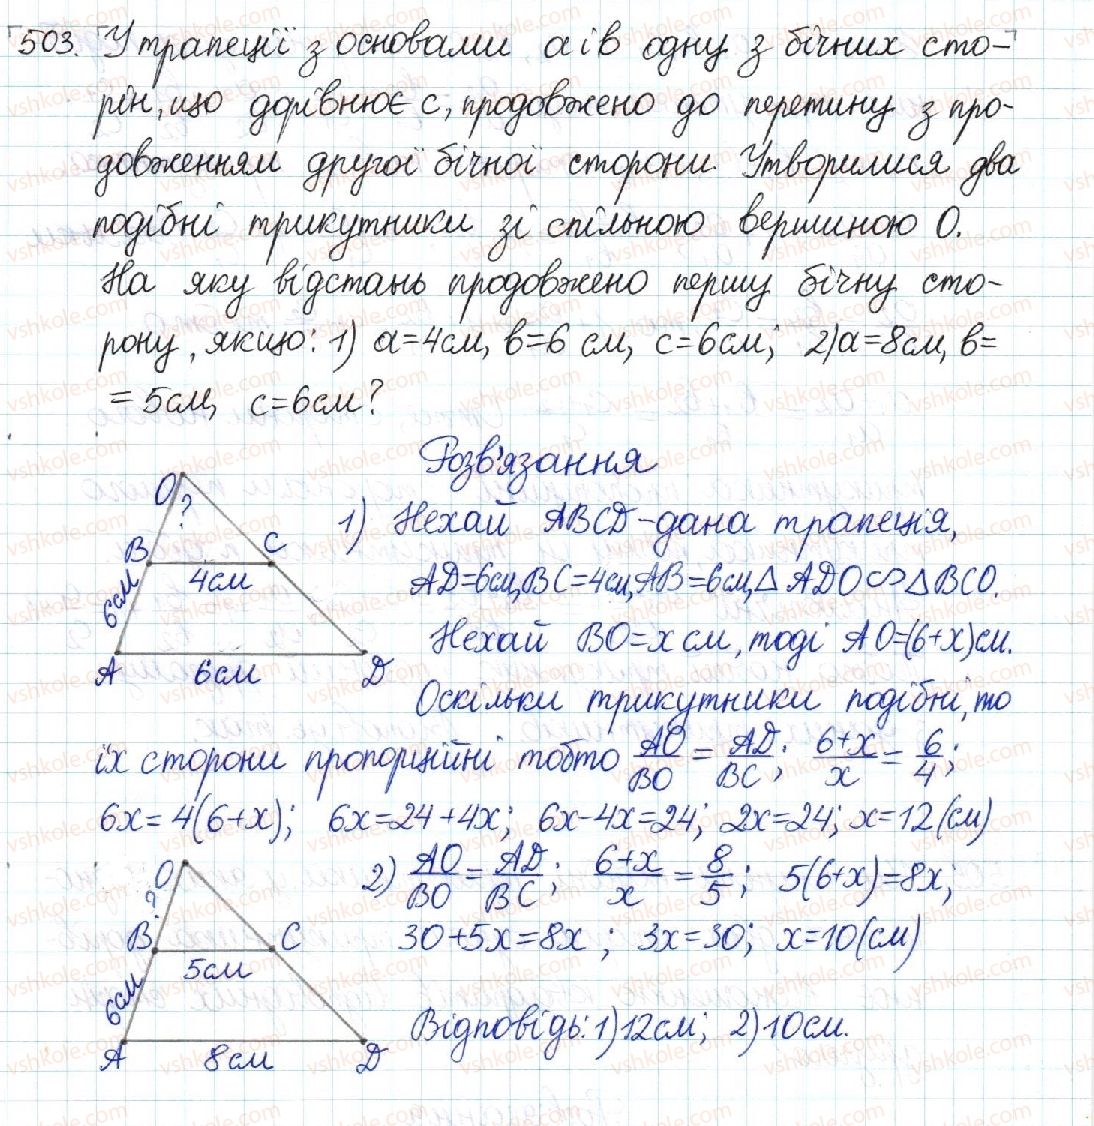 503. У трапеції з основами a і b одну з бічних сто-
рін, що дорівнює c, продовжено до перетину з про-
довженням другої бічної сторони. Утворилися два
подібні трикутники зі спільною вершиною O.
На яку відстань продовжено першу бічну сто-
рону, якщо: 1) a=4см, b=6 см, c=6см; 2) a=8см, b=
=5см, c=6см?
Розв'язання
1) Нехай ABCD-дана трапеція,
AD=6см, BC=4см, AB=6см, △ADO∽△BCO.
Нехай BO=x см, тоді AO=(6+x)см.
Оскільки трикутники подібні, то
їх сторони пропорційні тобто AO/BO = AD/BC; (6+x)/x = 6/4;
6x=4(6+x); 6x=24+4x; 6x-4x=24; 2x=24; x=12(см)
O
?
B C
6см 4см
A 6см D
2) AO/BO = AD/BC; (6+x)/x = 8/5; 5(6+x)=8x;
30+5x=8x; 3x=30; x=10(см)
Відповідь: 1) 12см; 2) 10см.
O
?
B C
6см 5см
A 8см D
vshkole.com